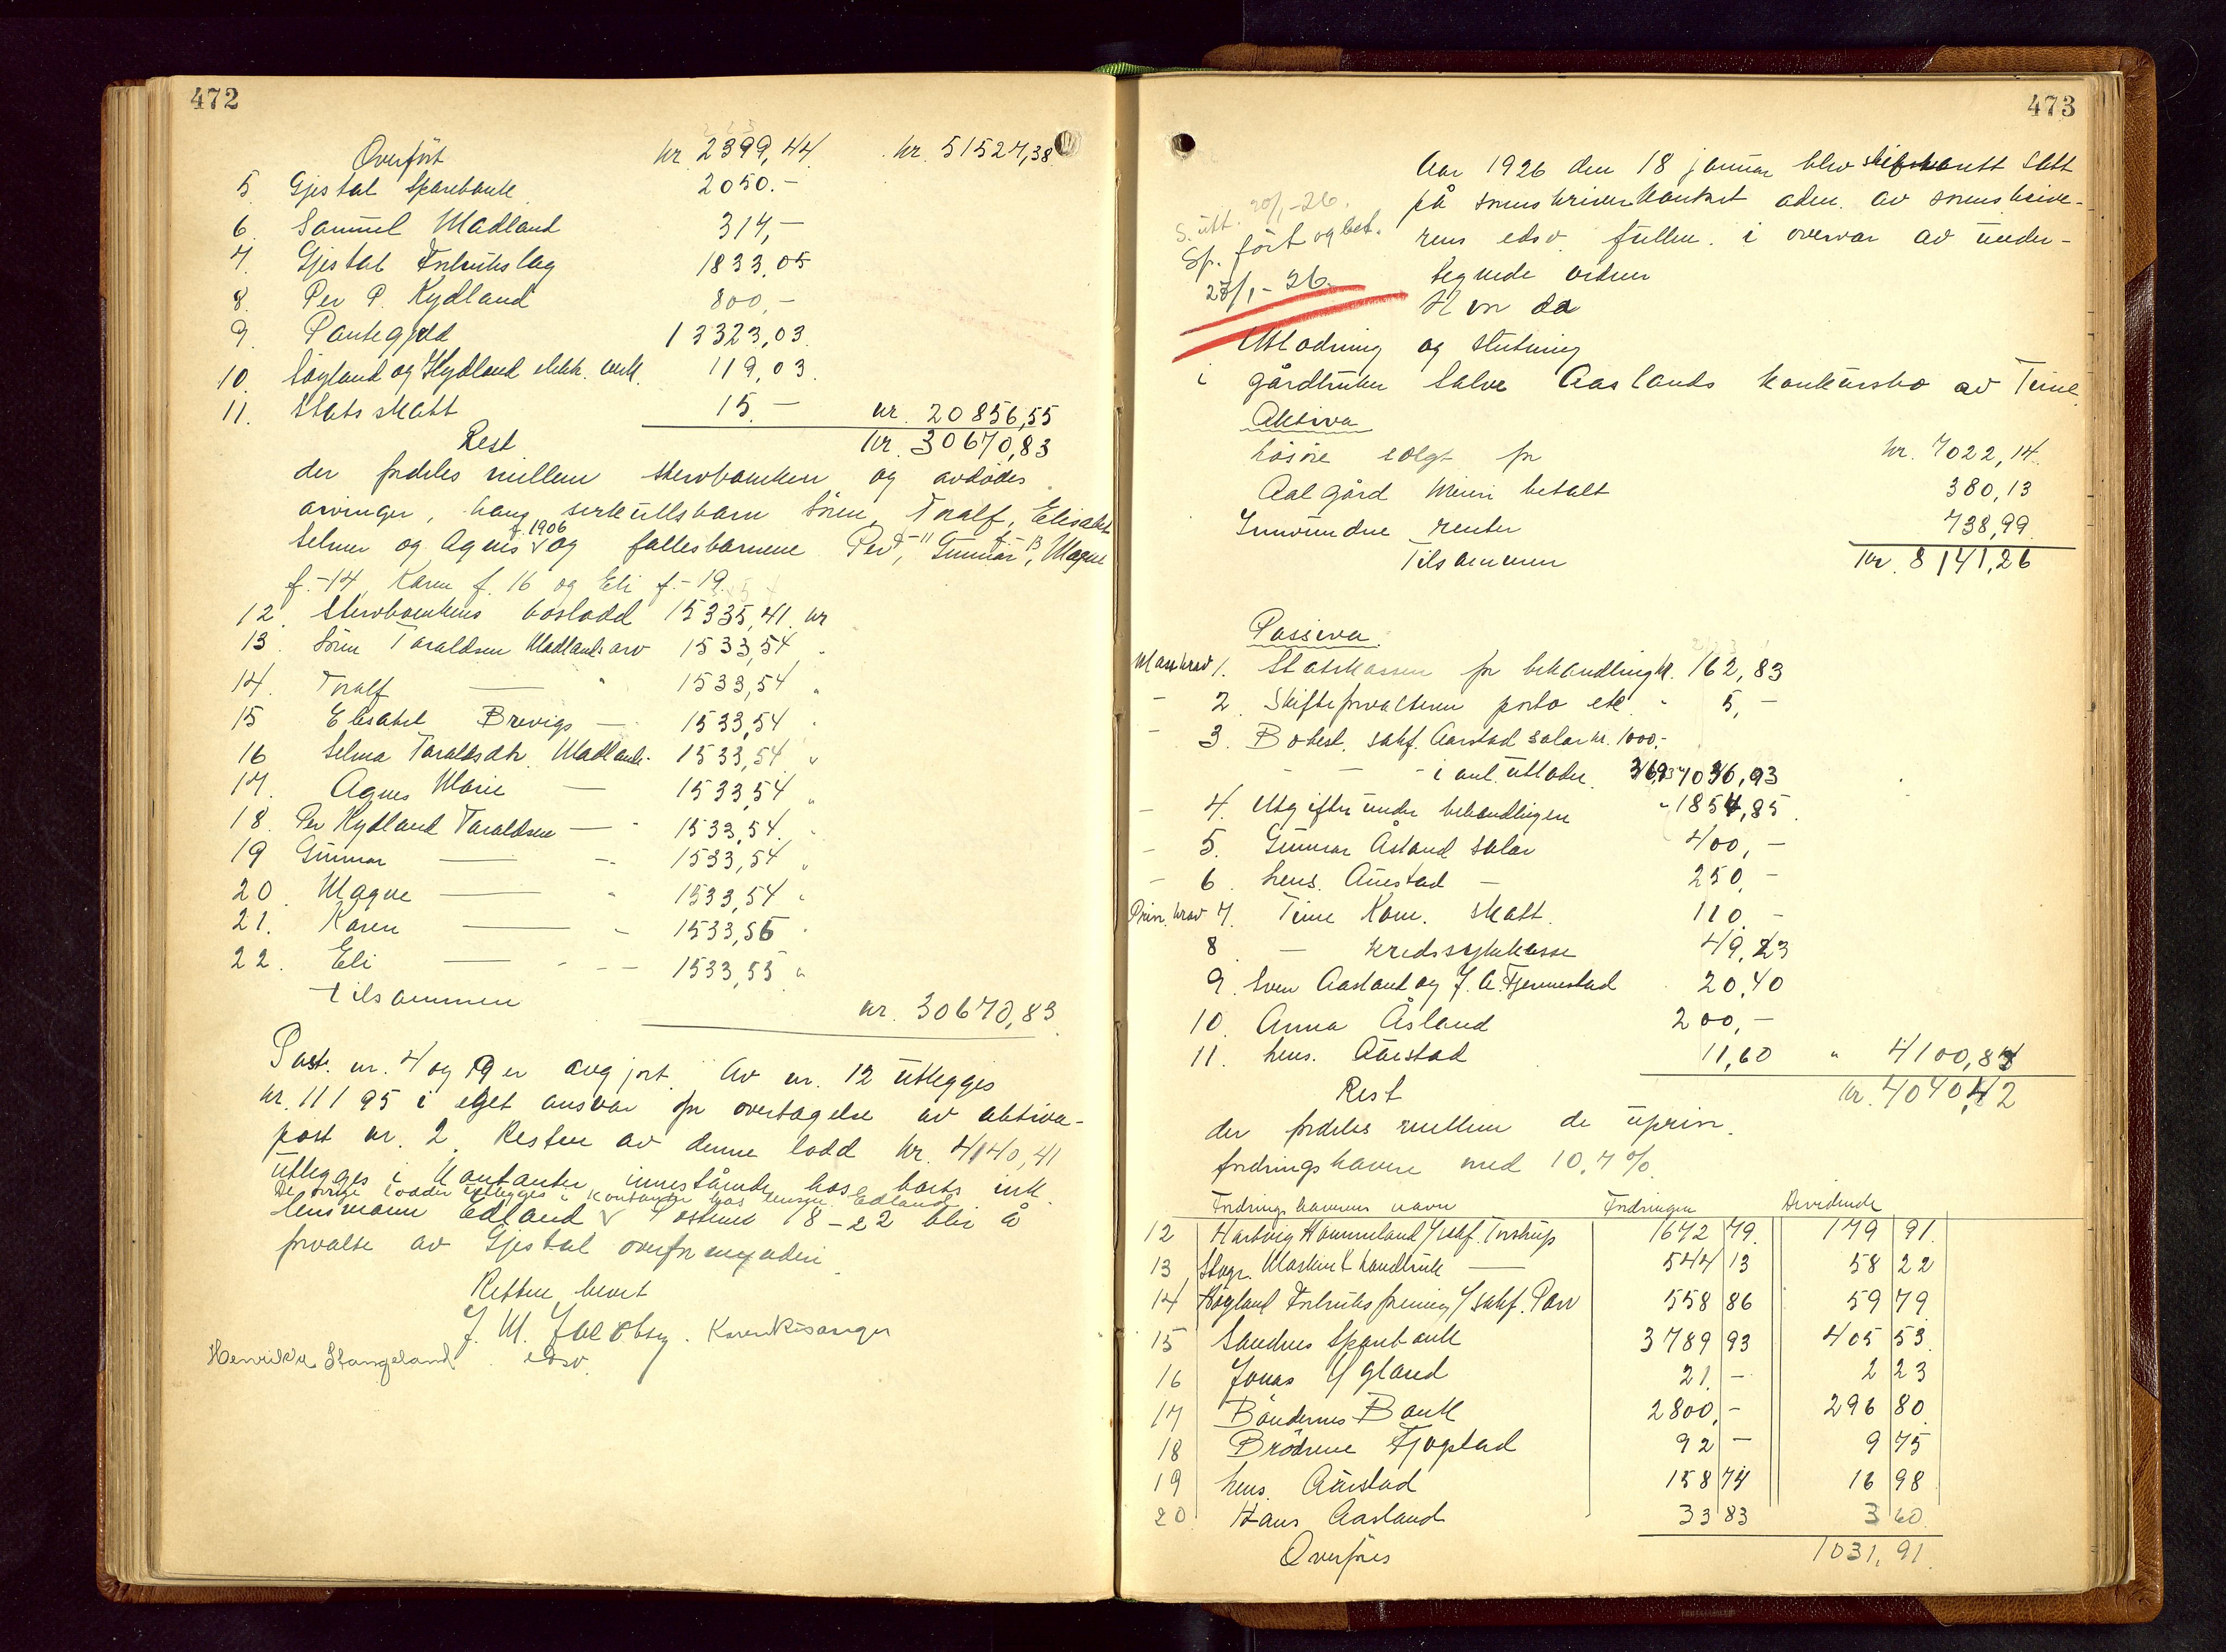 472
Overført kr. 2399,44 kr. 51527,38
5 Gjestal Sparebank 2050.-
6. Samuel Madland 317,-
7. Gjestal Forbrukslag 1833,05
8. Per P. Kydland 800,-
9. Pantegjeld 13323,03.
10. Søyland og Kydland elektr. verk. 119,03.
11. Statsskatt 15.- kr. 20856,55
Rest kr. 30670,83
der fordeles mellem stervboenken og avdødes
arvinger, hans serkullsbarn Søren, Toralf, Elisabet
Selmer og Agnes f. 1906 og fellesbarnene Per f. -11, Gunnar f. -13, Magne
f. -14, Karen f. 16 og Eli f. -19.
12. Stervboenkens boslodd 15335,41. kr
13. Sören Taraldsen Madlands arv 1533,54 "
14. Toralf — " 1533,54 "
15 Elisabet Brevigs — 1533,54 "
16 Selma Taraldsdtr. Madlands - 1533,54. "
17. Agnes Marie — 1533,54 "
18. Per Kydland Taraldsen — - 1533,54. "
19 Gunnar — - 1533,54 "
20. Magne — " 1533,54 "
21. Karen — - 1533,55 "
22. Eli — - - 1533,55 "
tilsammen kr. 30670,83
Post. nr. 4 og 9 er avgjort. Av nr. 12 utlegges
kr. 11195 i eget ansvar for overtagelse av aktiva-
post nr. 2. Resten av denne lodd kr. 4140,41
utlegges i kontanter innestående hos boets ink.
De övrige lodder utlegges i kontanter hos lensm. Edland
lensmann Edland v Postene 18-22 blir å
forvalte av Gjestal overformynderi.
Retten hevet
J. M. Jacobsen. Karen Risanger
Henrikk Stangeland edsv.
473
S. utt. 20/1-26.
Sp. fört og bet.
23/1-26.
Aar 1926 den 18 januar blev skifterett satt
på sorenskriverkontoret aden. av sorenskrive-
rens edsv. fullm. i overvær av under-
tegnede vidner
Hvor da
Utlodning og slutning
i gårdbruker Salve Aaslands konkursbo av Time.
Aktiva
Løsöre solgt for kr. 7022,14.
Aalgård Meieri betalt 380,13
Innvundne renter 738,99.
Tilsammen kr. 8141,26
Passiva.
Massekrav 1. Statskassen for behandling kr. 162,83
- 2. Skifteforvalteren porto etc. " 5,-
- 3. Bobest. sakf. Aarstad salær kr. 1000,-
- - - i anl. utlodn. 36,93 1036,93
- 4. Utgifter under behandlingen " 1854,85.
- 5. Gunnar Åsland salær " 400,-
- 6. Lens. Aarestad — 250,-
Priv. krav 7. Time Kom. skatt. 110.-
8. — kredssykekasse 49,23
9. Sven Aasland og J. A. Fjermestad 20,40
10. Anna Åsland 200,-
11. Lens. Aarestad 11,60 " 4100,84
Rest kr. 4040,42
der fordeles mellem de upriv.
fordringshavere med 10,7%.
Fordringshaverens navn Fordringen Dividende
12 Hartvig Hammeland v/ sakf. Torstrup 1672 79. 179 91.
13 Stvgr. Maskin & Landbruk — 544 13 58 22
14 Høyland Forbruksforening v/ sakf. Parr 558 86 59 79
15 Sandnes Sparebank 3789 93 405 53.
16 Jonas Ygland 21. - 2 23
17 Bøndernes Bank 2800,- 296 80.
18 Brödrene Fjogstad 92 - 9 75
19 Lens. Aarestad 158 74 16 98
20 Hans Aasland 33 83 3 60.
Overføres 1031,91.